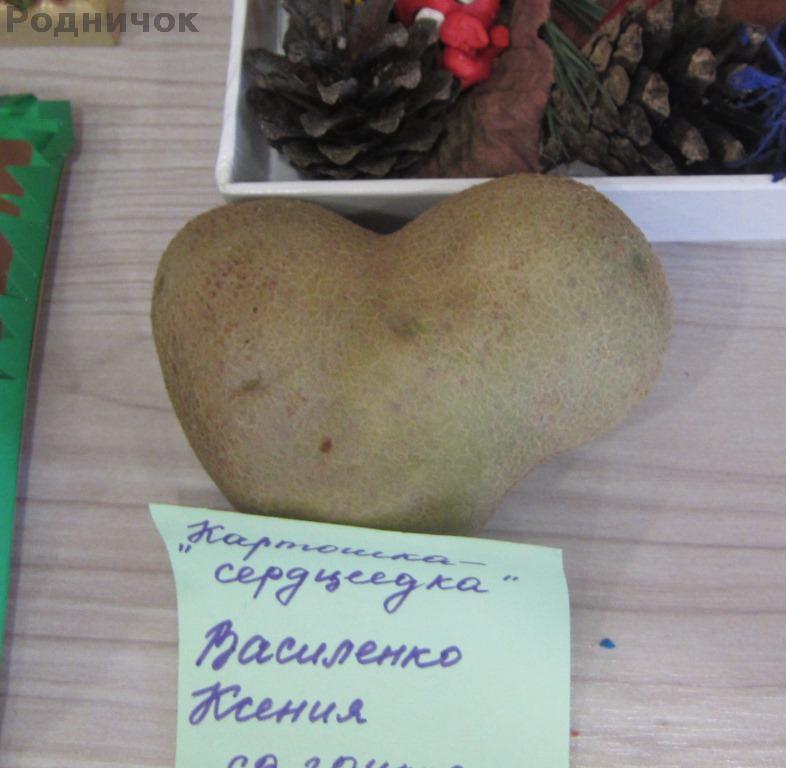 Родничок
„Картошка-
сердцеедка"
Василенко
Ксения